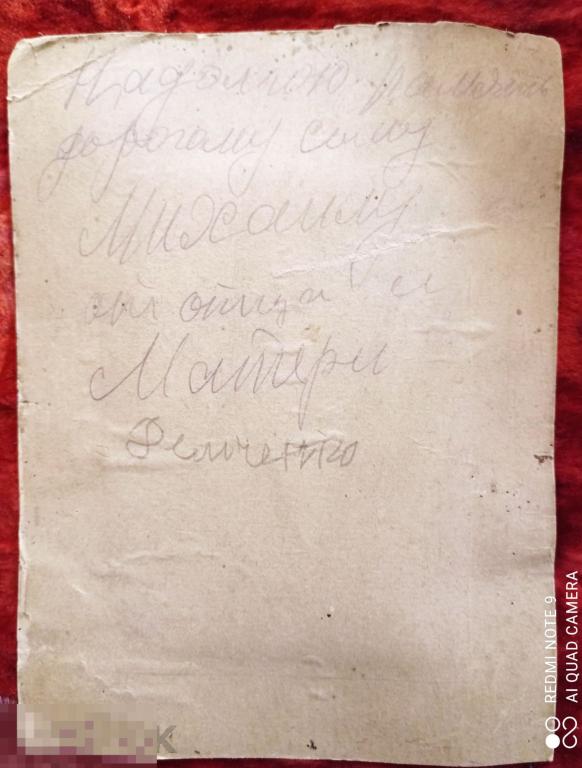 На долгую память
дорогому сыну
Михаилу
от отца и
Матери
REDMI NOTE 9
AI QUAD CAMERA